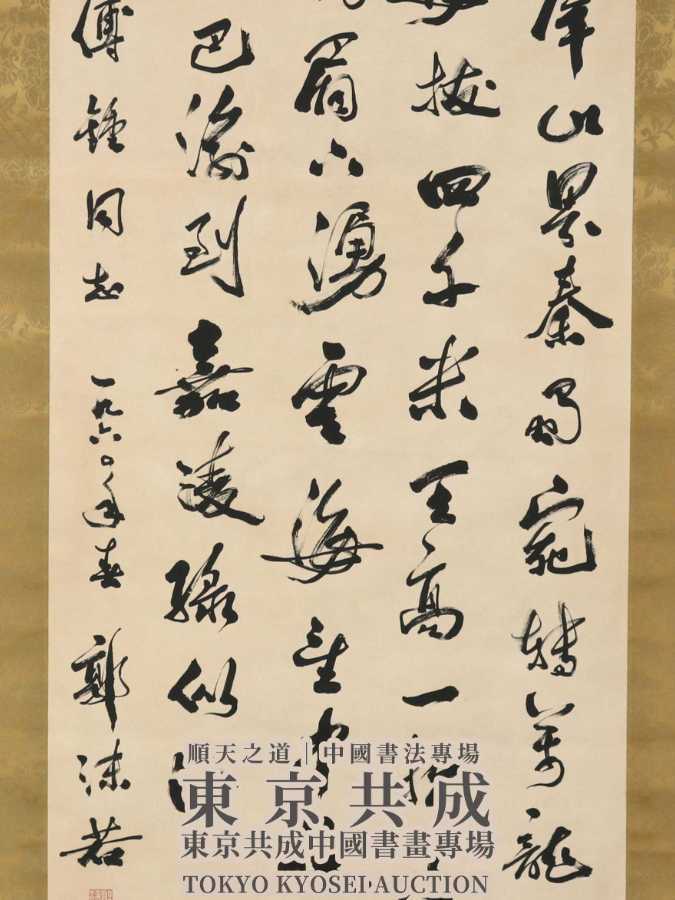 山界秦蜀宛轉萬龍
拔四千米天高一
眉下湧雲海望中
巴渝到嘉陵綠似
傅鍾同志 一九六〇年春 郭沫若
順天之道｜中國書法專場
東京共成
東京共成中國書畫專場
TOKYO KYOSEI AUCTION